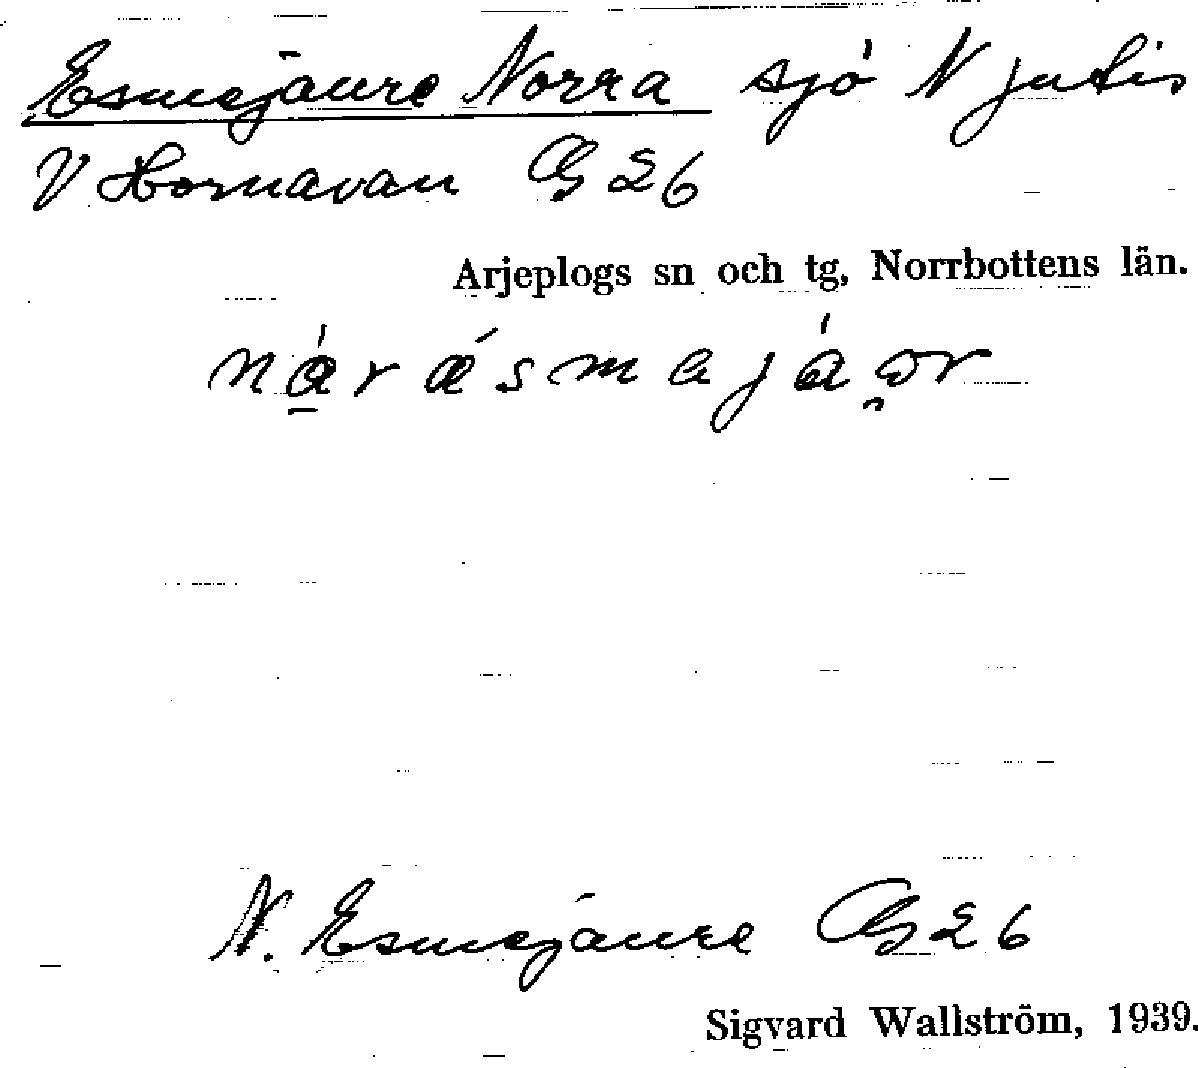 Esmejaure Norra sjö N Jutis
V Hornavan GB 26
Arjeplogs sn och tg, Norrbottens län.
nȧ̱rásmejȧo̯r
N. Esmejaure GB 26
Sigvard Wallström, 1939.